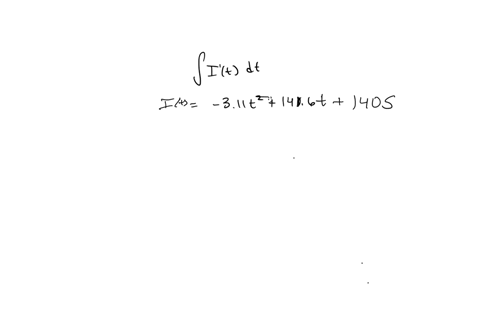 ∫ I'(t) dt
I(t) = -3.11t² + 141.6t + 1405